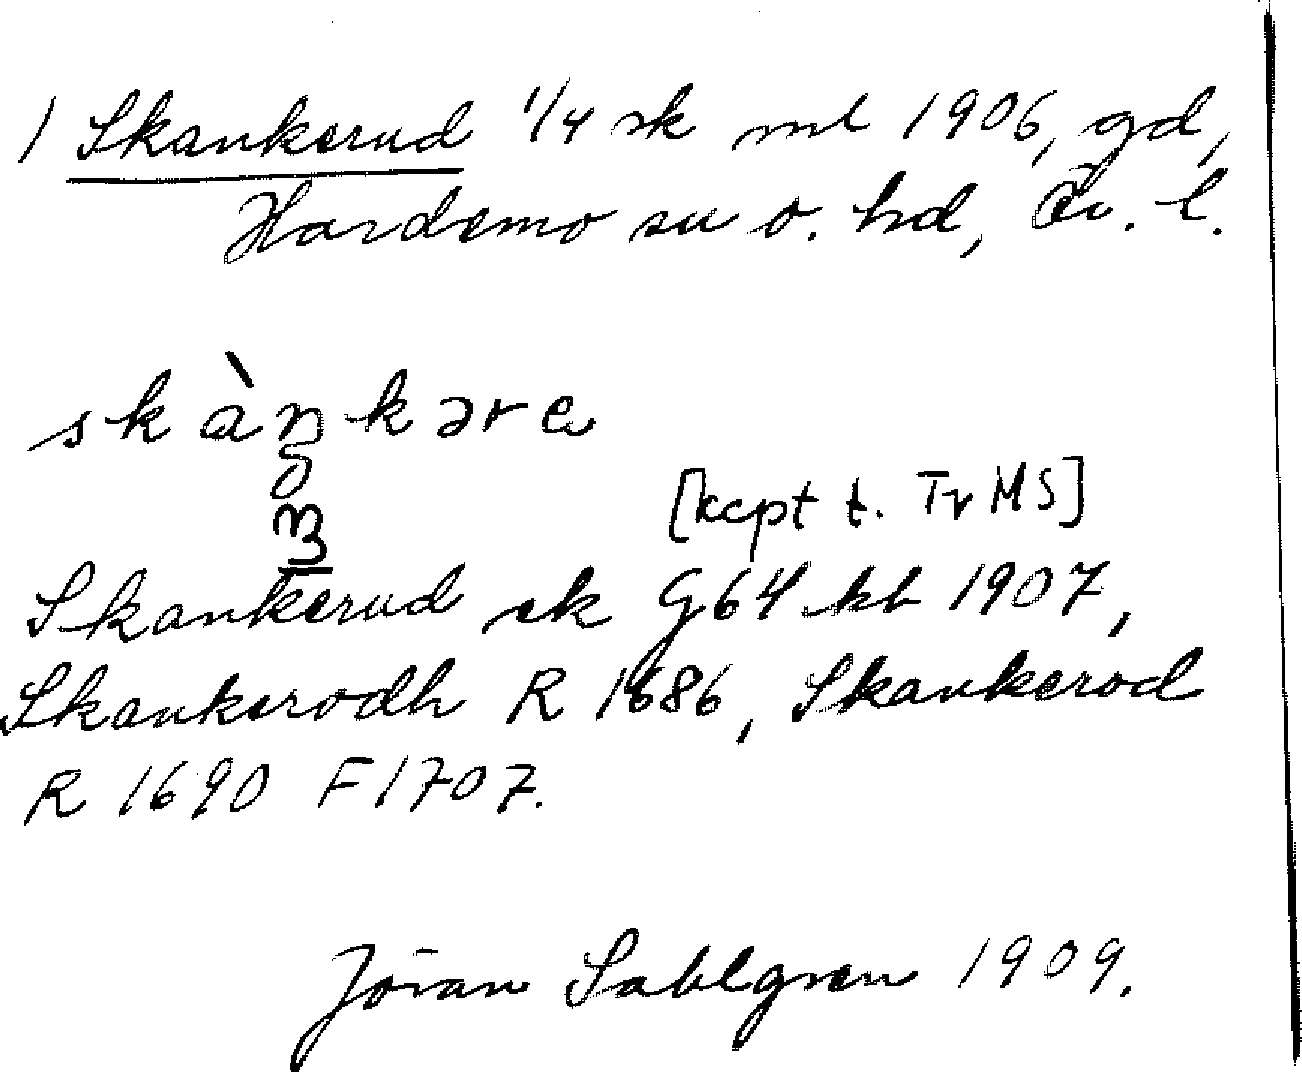 1 Skankerud 1/4 sk ml 1906, gd,
Hardemo sn o. hd, Ör. l.
skàŋkəre
[kcpt t. Tr MS]
Skankerud ek G64 kb 1907,
Skankerodh R 1686, Skankerod
R 1690 F 1707.
Jöran Sahlgren 1909.